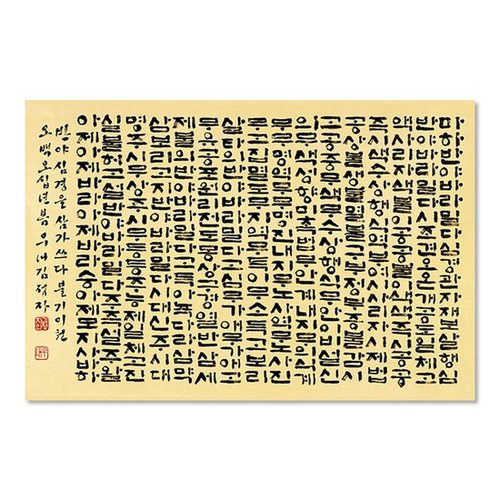 마하반야바라밀다심경관자재보살행심
반야바라밀다시조견오온개공도일체고
액사리자색불이공공불이색색즉시공공
즉시색수상행식역부여시사리자시제법
공상불생불멸불구부정부증불감시고공
중무색무수상행식무안이비설신
의무색성향미촉법무안계내지무의식계
무무명역무무명진내지무노사역무노사
진무고집멸도무지역무득이무소득고보리
살타의반야바라밀다고심무가애무가애
고무유공포원리전도몽상구경열반삼세
제불의반야바라밀다고득아뇩다라삼먁
삼보리고지반야바라밀다시대신주시대
명주시무상주시무등등주능제일체고진
실불허고설반야바라밀다주즉설주왈
아제아제바라아제바라승아제모지사바하
반야심경을 삼가 쓰다 불기이천
오백오십년 봄 김정자